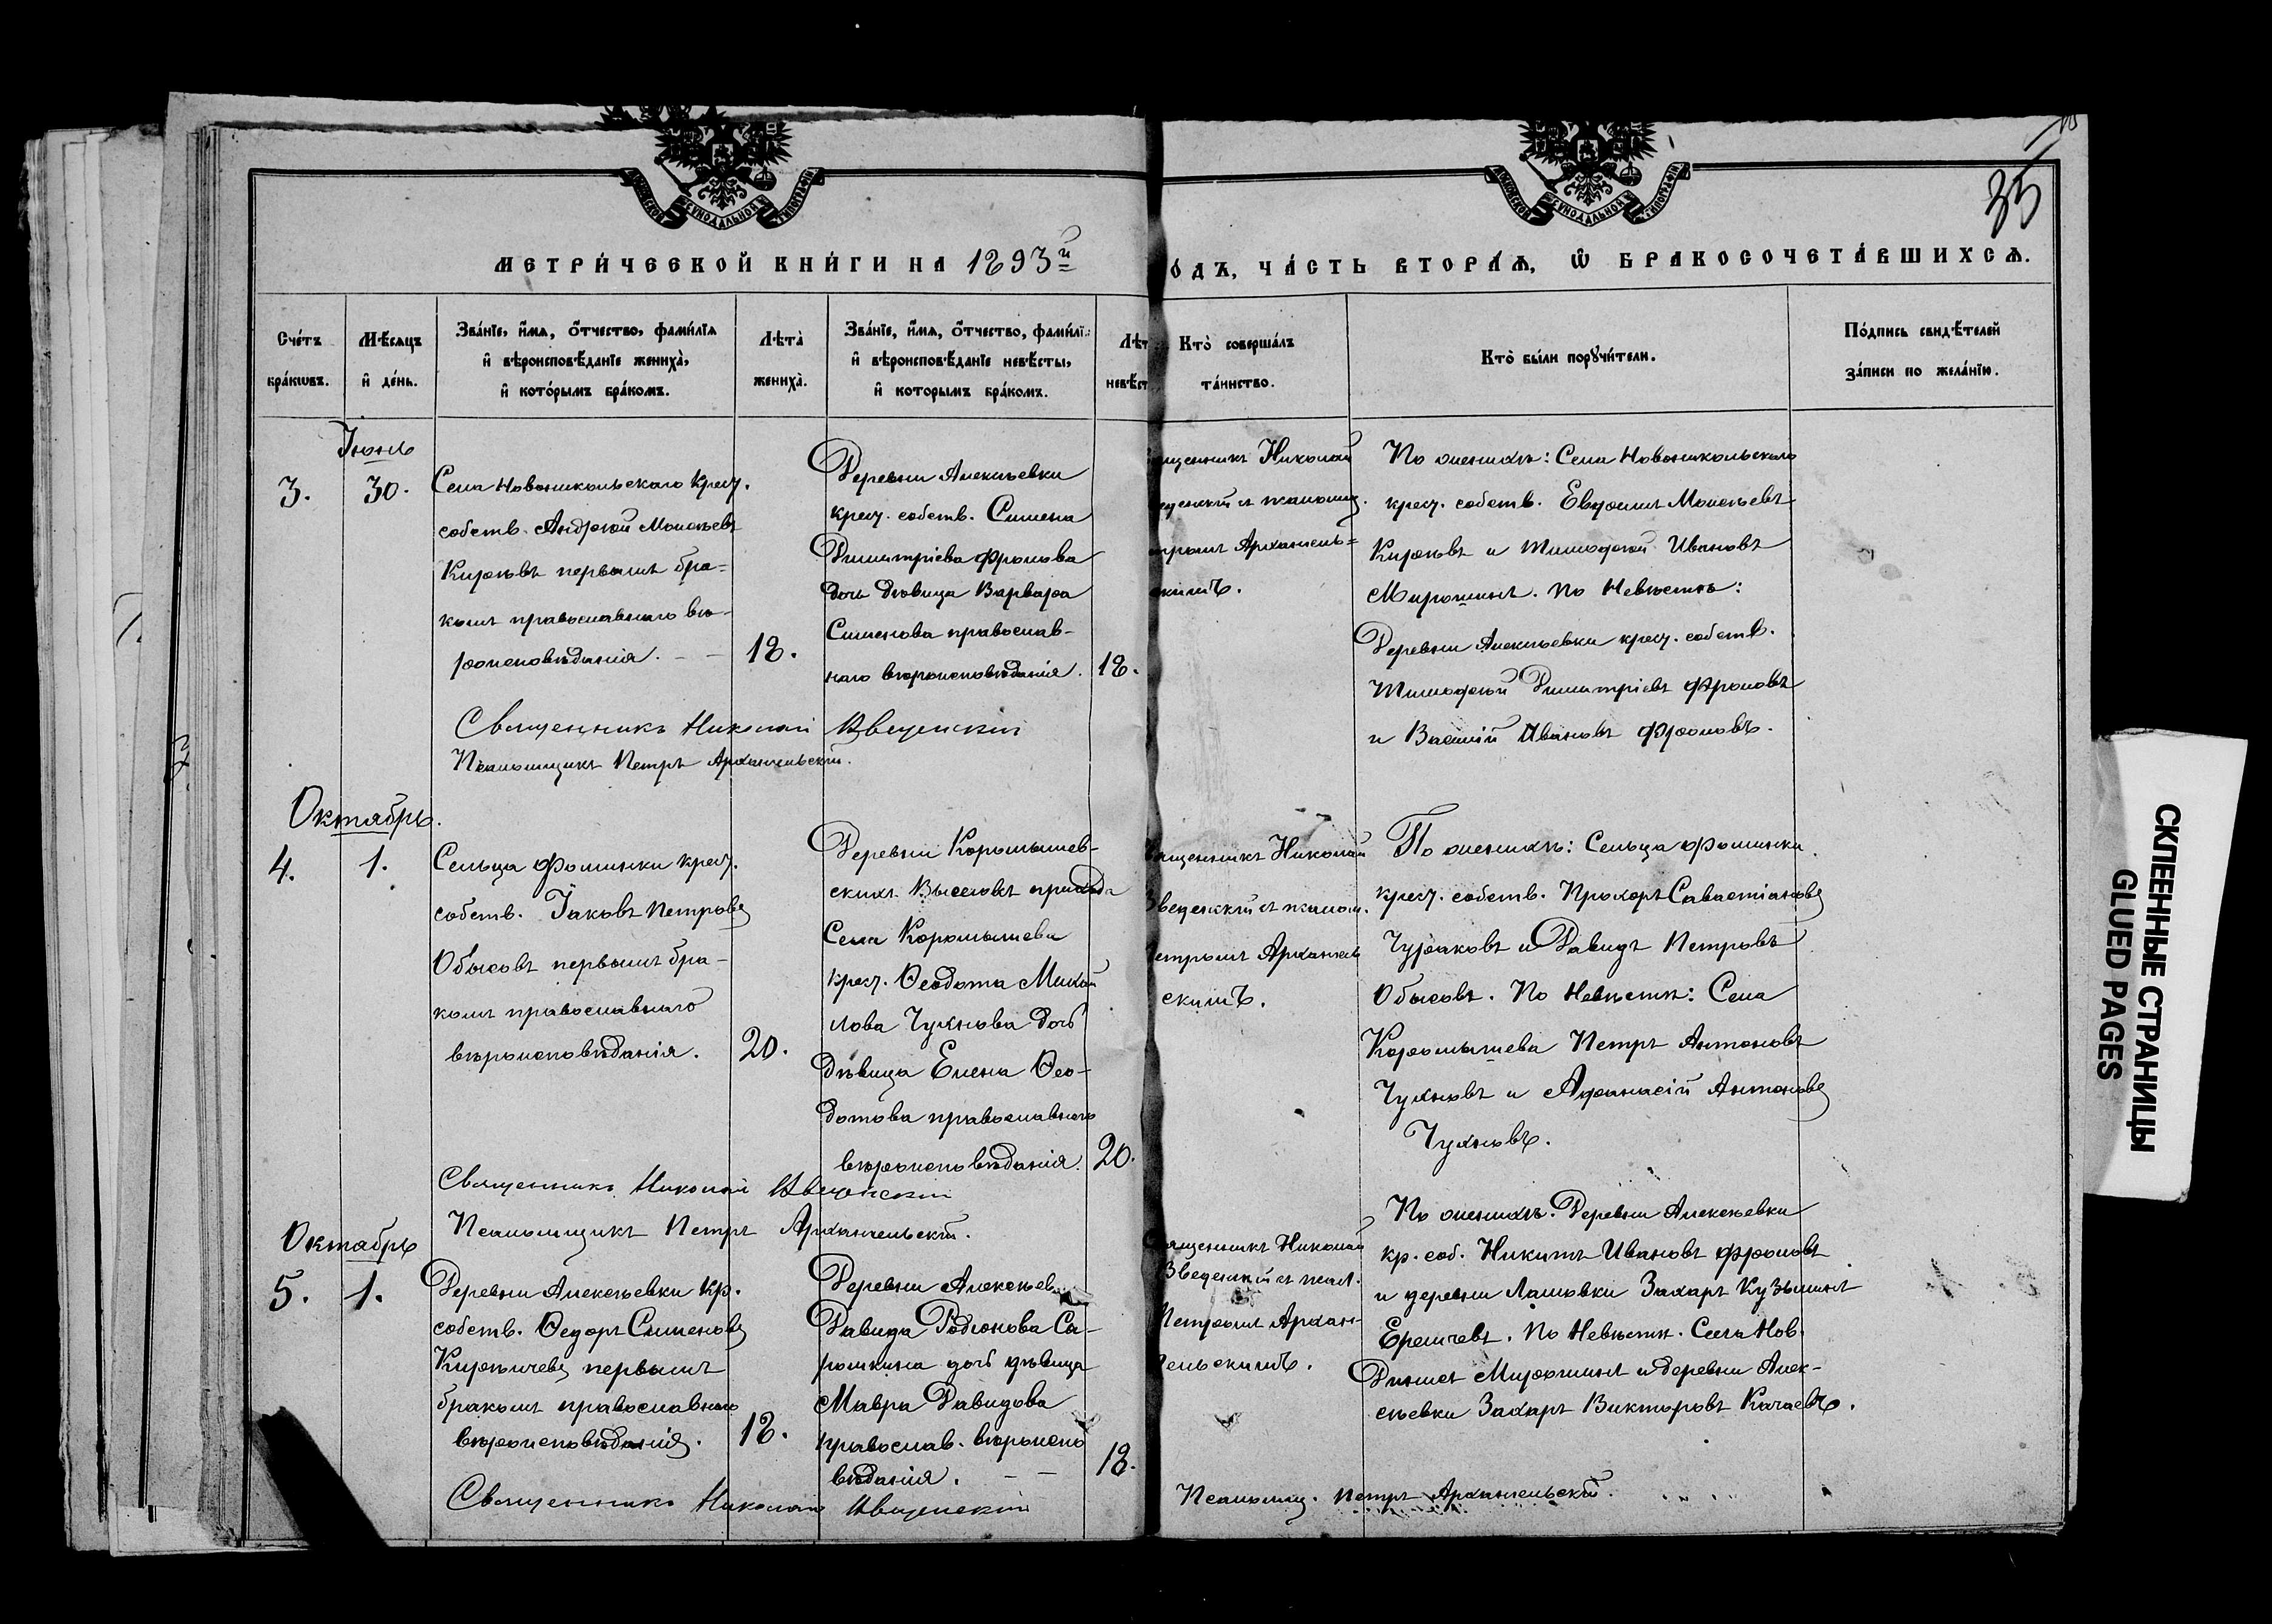 35
МОСКОВСКОЙ СУНОДАЛЬНОЙ ТИПОГРАФІИ
МОСКОВСКОЙ СУНОДАЛЬНОЙ ТИПОГРАФІИ
МЕТРИ́ЧЕСКОЙ КНИ́ГИ НА 1893й
О́ДЪ, ЧА́СТЬ ВТОРА́Ѧ, Ѡ҆ БРАКОСОЧЕТА́ВШИХСѦ.
Сче́тъ бра́кѡвъ.
Мѣ́сяцъ и҆ де́нь.
Зва́нїе, и҆́мѧ, ѻ҆́тчество, фами́лїѧ
и҆ вѣроисповѣ́данїе жениха̀,
и҆ кото́рымъ бра́комъ.
Лѣ́та̀ жениха̀.
Зва́нїе, и҆́мѧ, ѻ҆́тчество, фами́лї
и҆ вѣроисповѣ́данїе невѣ́сты,
и҆ кото́рымъ бра́комъ.
Лѣт невѣ́ст
Кто̀ соверша́лъ та́инство.
Кто̀ бы́ли порꙋчи́тели.
По́дпись свидѣ́телей за́писи по жела́нїю.
Іюнь
3.
30.
Села Новоникольскаго крест.
собств. Андрей Моисеевъ
Кирѣевъ первымъ бра=
комъ православнаго вѣ-
роисповѣданія. — —
18.
Деревни Алексѣевки
крест. собств. Симеона
Димитріева Фролова
дочь дѣвица Варвара
Симеонова православ-
наго вѣроисповѣданія.
18.
ященникъ Николай
веденскій съ псаломщ.
тромъ Архангель=
скимъ.
По женихѣ: Села Новоникольскаго
крест. собств. Евдокимъ Моисеевъ
Кирѣевъ и Тимофей Ивановъ
Мирошинъ. По Невѣстѣ:
Деревни Алексѣевки крест. собств.
Тимофей Димитріевъ Фроловъ
и Василій Ивановъ Фроловъ.
Священникъ Николай Введенскій
Псаломщикъ Петръ Архангельскій.
Октябрь.
4.
1.
Сельца Фоминки крест.
собств. Іаковъ Петровъ
Обысовъ первымъ бра-
комъ православнаго
вѣроисповѣданія.
20.
Деревни Коромышев-
скихъ Выселокъ прихода
Села Коромышева
крест. Ѳеодота Михай
лова Чухнова дочь
дѣвица Елена Ѳео-
дотова православнаго
вѣроисповѣданія.
20.
вященникъ Николай
Введенскій съ псалом.
Петромъ Архангель
скимъ.
По женихѣ: Сельца Фоминки
крест. собств. Прохоръ Савастіановъ
Чураковъ и Давидъ Петровъ
Обысовъ. По Невѣстѣ: Села
Коромышева Петръ Антоновъ
Чухновъ и Аѳанасій Антоновъ
Чухновъ.
Священникъ Николай Введенскій
Псаломщикъ Петръ Архангельскій.
Октябрь
5.
1.
Деревни Алексѣевки кр.
собств. Ѳедоръ Симеоновъ
Кирѣичевъ первымъ
бракомъ православнаго
вѣроисповѣданія.
18.
Деревни Алексѣев
Давида Родіонова Са-
рошкина дочь дѣвица
Мавра Давидова
православ. вѣроиспо
вѣданія. — —
18.
Священникъ Николай
Введенскій съ псал.
Петромъ Архан-
гельскимъ.
По женихѣ. Деревни Алексѣевки
кр. соб. Никита Ивановъ Фроловъ
и деревни Лашовки Захаръ Кузьминъ
Еремчевъ. По Невѣстѣ. Села Нов.
Мирошинъ и деревни Алек-
сѣевки Захаръ Викторовъ Качаевъ.
Священникъ Николай Введенскій
Псаломщ. Петръ Архангельскій.
СКЛЕЕННЫЕ СТРАНИЦЫ
GLUED PAGES